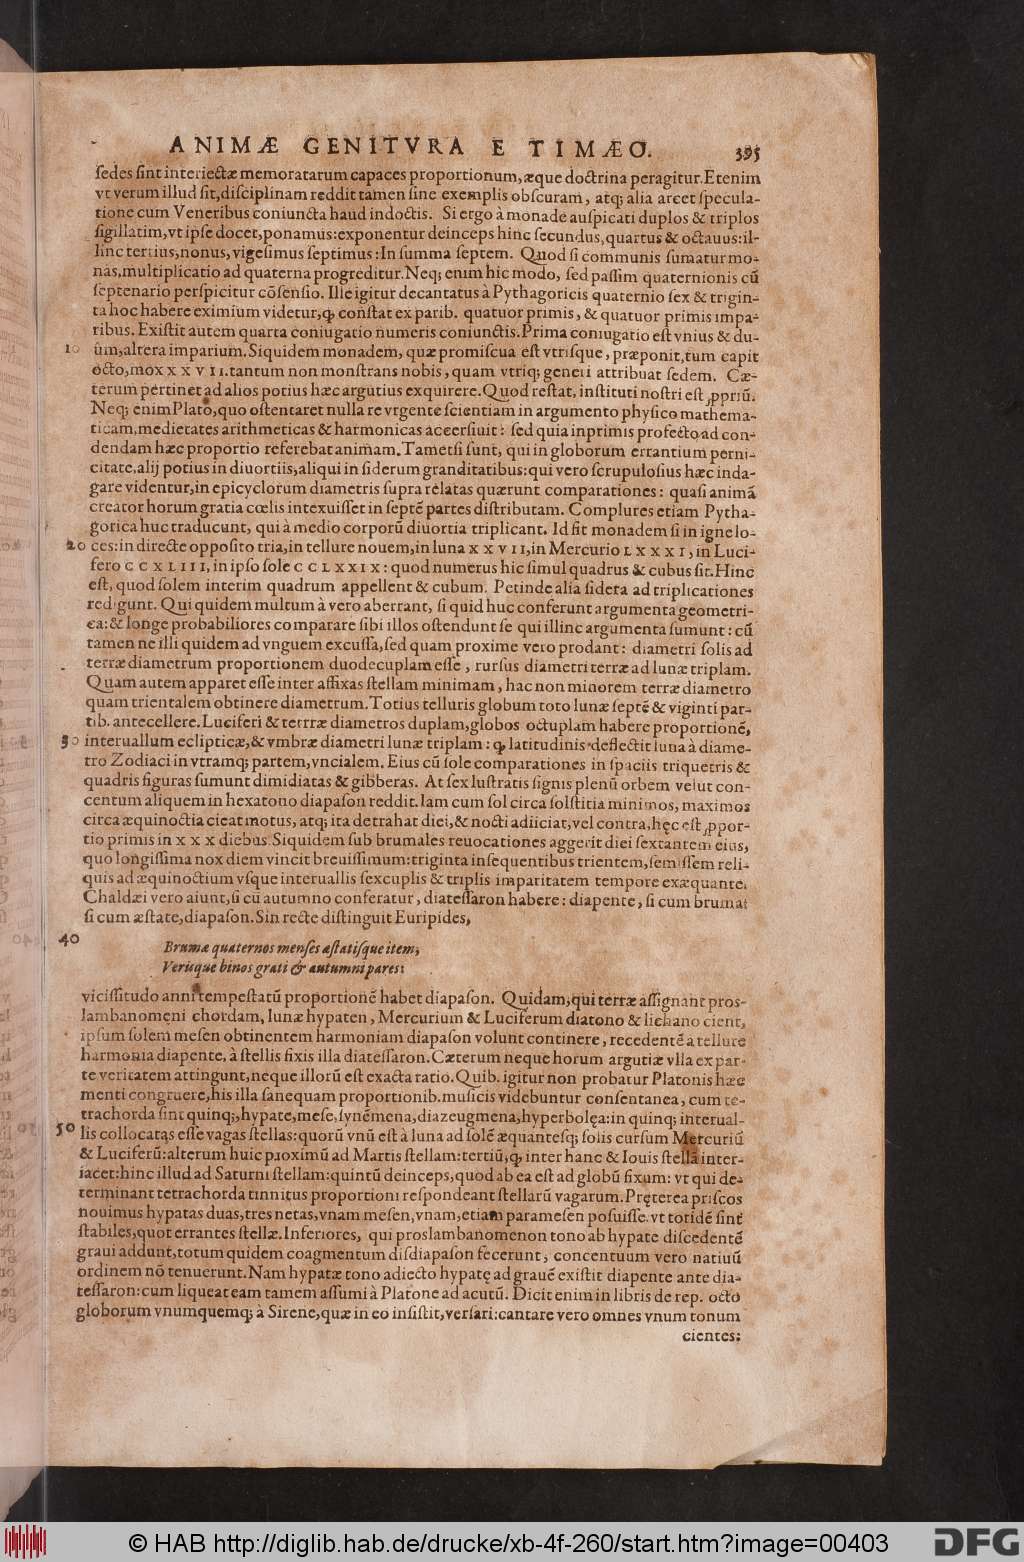 ANIMÆ GENITVRA E TIMÆO. 395
ſedes ſint interiectæ memoratarum capaces proportionum, æque doctrina peragitur. Etenim
vt verum illud ſit, diſciplinam reddit tamen ſine exemplis obſcuram, atq; alia arcet ſpecula-
tione cum Veneribus coniuncta haud indoctis. Si ergo à monade auſpicati duplos & triplos
ſigillatim, vt ipſe docet, ponamus: exponentur deinceps hinc ſecundus, quartus & octauus: il-
linc tertius, nonus, vigeſimus ſeptimus: In ſumma ſeptem. Quod ſi communis ſumatur mo-
nas, multiplicatio ad quaterna progreditur. Neq; enim hic modo, ſed paſſim quaternionis cũ
ſeptenario perſpicitur cõſenſio. Ille igitur decantatus à Pythagoricis quaternio ſex & trigin-
ta hoc habere eximium videtur, ꝙ conſtat ex parib. quatuor primis, & quatuor primis impa-
ribus. Exiſtit autem quarta coniugatio numeris coniunctis. Prima coniugatio eſt vnius & du-
10 ũm, altera imparium. Siquidem monadem, quæ promiſcua eſt vtriſque, præponit, tum capit
octo, mox XXVII. tantum non monſtrans nobis, quam vtriq; generi attribuat ſedem. Cæ-
terum pertinet ad alios potius hæc argutius exquirere. Quod reſtat, inſtituti noſtri eſt ꝓpriũ.
Neq; enim Plato, quo oſtentaret nulla re vrgente ſcientiam in argumento phyſico mathema-
ticam, medietates arithmeticas & harmonicas acceſsiuit: ſed quia inprimis profecto ad con-
dendam hæc proportio referebat animam. Tametſi ſunt, qui in globorum errantium perni-
citate, alij potius in diuortiis, aliqui in ſiderum granditatibus: qui vero ſcrupuloſius hæc inda-
gare videntur, in epicyclorum diametris ſupra relatas quærunt comparationes: quaſi animã
creator horum gratia cœlis intexuiſſet in ſeptẽ partes diſtributam. Complures etiam Pytha-
gorica huc traducunt, qui à medio corporũ diuortia triplicant. Id fit monadem ſi in igne lo-
20 ces: in directe oppoſito tria, in tellure nouem, in luna XXVII, in Mercurio LXXXI, in Luci-
fero CCXLIII, in ipſo ſole CCLXXIX: quod numerus hic ſimul quadrus & cubus ſit. Hinc
eſt, quod ſolem interim quadrum appellent & cubum. Perinde alia ſidera ad triplicationes
redigunt. Qui quidem multum à vero aberrant, ſi quid huc conferunt argumenta geometri-
ca: & longe probabiliores comparare ſibi illos oſtendunt ſe qui illinc argumenta ſumunt: cũ
tamen ne illi quidem ad vnguem excuſſa, ſed quam proxime vero prodant: diametri ſolis ad
terræ diametrum proportionem duodecuplam eſſe, rurſus diametri terræ ad lunæ triplam.
Quam autem apparet eſſe inter affixas ſtellam minimam, hac non minorem terræ diametro
quam trientalem obtinere diametrum. Totius telluris globum toto lunæ ſeptẽ & viginti par-
tib. antecellere. Luciferi & terrræ diametros duplam, globos octuplam habere proportionẽ,
30 interuallum eclipticæ, & vmbræ diametri lunæ triplam: ꝙ latitudinis deflectit luna à diame-
tro Zodiaci in vtramq; partem, vncialem. Eius cũ ſole comparationes in ſpaciis triquetris &
quadris figuras ſumunt dimidiatas & gibberas. At ſex luſtratis ſignis plenũ orbem velut con-
centum aliquem in hexatono diapaſon reddit. Iam cum ſol circa ſolſtitia minimos, maximos
circa æquinoctia cieat motus, atq; ita detrahat diei, & nocti adiiciat, vel contra, hęc eſt ꝓpor-
tio primis in XXX diebus. Siquidem ſub brumales reuocationes aggerit diei ſextantem eius,
quo longiſſima nox diem vincit breuiſſimum: triginta inſequentibus trientem, ſemiſſem reli-
quis ad æquinoctium vſque interuallis ſexcuplis & triplis imparitatem tempore exæquante.
Chaldæi vero aiunt, ſi cũ autumno conferatur, diateſſaron habere: diapente, ſi cum bruma:
ſi cum æſtate, diapaſon. Sin recte diſtinguit Euripides,
40 Brumæ quaternos menſes æſtatiſque item,
Veriſque binos grati & autumni pares:
viciſſitudo anni tempeſtatũ proportionẽ habet diapaſon. Quidam, qui terræ aſſignant pros-
lambanomeni chordam, lunæ hypaten, Mercurium & Luciferum diatono & lichano cient,
ipſum ſolem meſen obtinentem harmoniam diapaſon volunt continere, recedentẽ a tellure
harmonia diapente, à ſtellis fixis illa diateſſaron. Cæterum neque horum argutiæ vlla ex par-
te veritatem attingunt, neque illorũ eſt exacta ratio. Quib. igitur non probatur Platonis hæc
menti congruere, his illa ſanequam proportionib. muſicis videbuntur conſentanea, cum te-
trachorda ſint quinq;, hypate, meſe, ſynẽmena, diazeugmena, hyperbolęa: in quinq; interual-
50 lis collocatas eſſe vagas ſtellas: quorũ vnũ eſt à luna ad ſolẽ æquantesq; ſolis curſum Mercuriũ
& Luciferũ: alterum huic proximũ ad Martis ſtellam: tertiũ, ꝙ inter hanc & Iouis ſtellã inter-
iacet: hinc illud ad Saturni ſtellam: quintũ deinceps, quod ab ea eſt ad globũ fixum: vt qui de-
terminant tetrachorda tinnitus proportioni reſpondeant ſtellarũ vagarum. Pręterea priſcos
nouimus hypatas duas, tres netas, vnam meſen, vnam, etiam parameſen poſuiſſe, vt totidẽ ſint
ſtabiles, quot errantes ſtellæ. Inferiores, qui proslambanomenon tono ab hypate diſcedentẽ
graui addunt, totum quidem coagmentum diſdiapaſon fecerunt, concentuum vero natiuũ
ordinem nõ tenuerunt. Nam hypatæ tono adiecto hypatę ad grauẽ exiſtit diapente ante dia-
teſſaron: cum liqueat eam tamem aſſumi à Platone ad acutũ. Dicit enim in libris de rep. octo
globorum vnumquemq; à Sirene, quæ in eo inſiſtit, verſari: cantare vero omnes vnum tonum
cientes:
© HAB http://diglib.hab.de/drucke/xb-4f-260/start.htm?image=00403
DFG